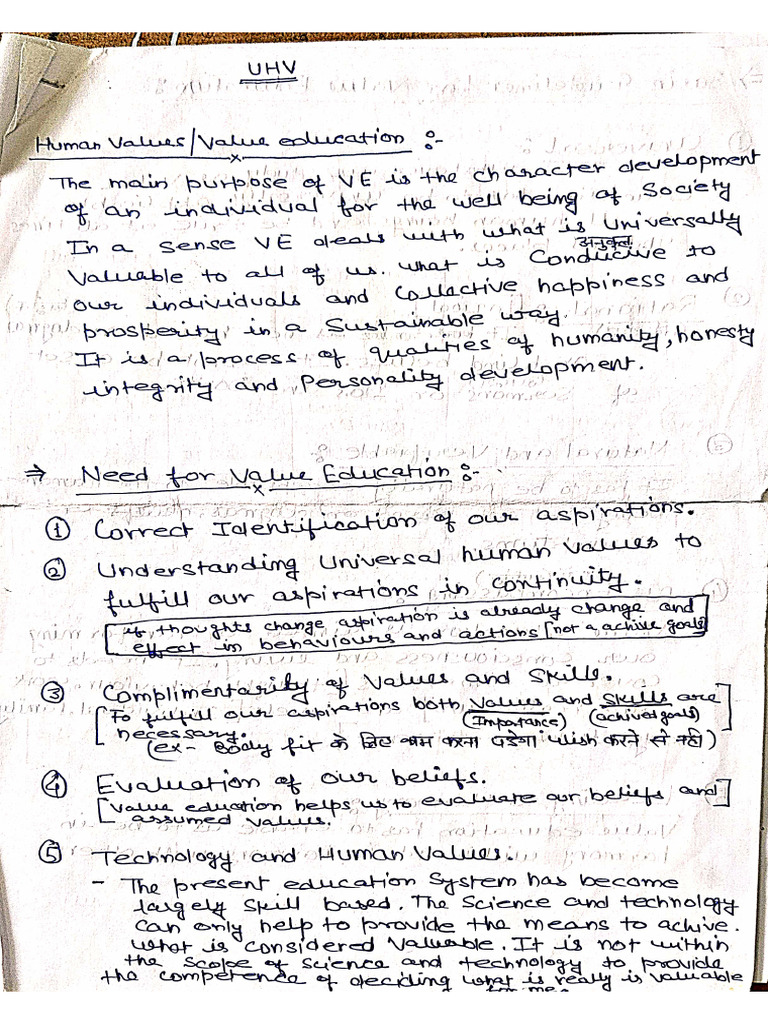 UHV
Human Values/Value education :-
The main purpose of VE is the character development
of an individual for the well being of Society
In a sense VE deals with what is Universally
अनुकूल
Valuable to all of us. what is Conducive to
our individuals and Collective happiness and
prosperity in a Sustainable way.
It is a process of qualities of humanity, honesty
integrity and Personality development.
⇒ Need for Value Education :-
① Correct Identification of our aspirations.
② Understanding Universal human values to
fulfill our aspirations in continuity.
if thoughts change aspiration is already change and
effect in behaviours and actions [not a achive goals]
③ Complimentarity of Values and Skills.
[To fulfill our aspirations both Values and Skills are
(Importance) (achived goals)
necessary.]
(ex- Body fit के लिए काम करना पड़ेगा wish करने से नहीं)
④ Evaluation of our beliefs.
[Value education helps us to evaluate our beliefs and
assumed values.]
⑤ Technology and Human Values.
- The present education System has become
largely skill based. The Science and technology
can only help to provide the means to achive.
what is considered valuable. It is not within
the scope of science and technology to provide
the competence of deciding what is really is valuable